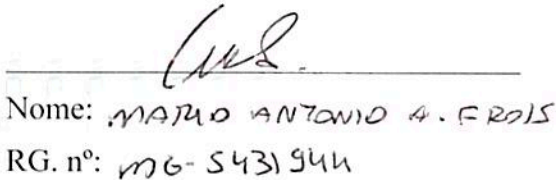 Nome: MARIO ANTONIO A. FROIS
RG. nº: MG-5431944